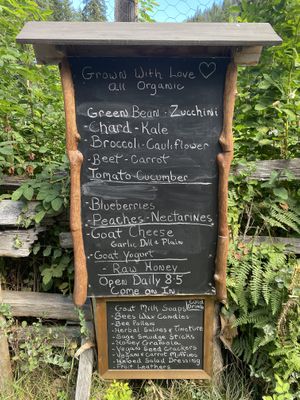 Grown With Love ♡
all Organic
Green Bean · Zucchini
- Chard - Kale
- Broccoli - Cauliflower
- Beet - Carrot
Tomato - Cucumber
- Blueberries
- Peaches - Nectarines
- Goat Cheese
Garlic Dill & Plain
- Goat Yogurt
- Raw Honey
Open Daily 8-5
Come on In
- Goat Milk Soaps
Cold Drinks
- Bees Wax Candles
- Bee Pollen
- Herbal Salves & Tincture
- Sage Smudge Sticks
- Honey Granola
- Vegan Seed Crackers
- Vegan Carrot Muffins
- Salad Dressing
- Fruit Leathers